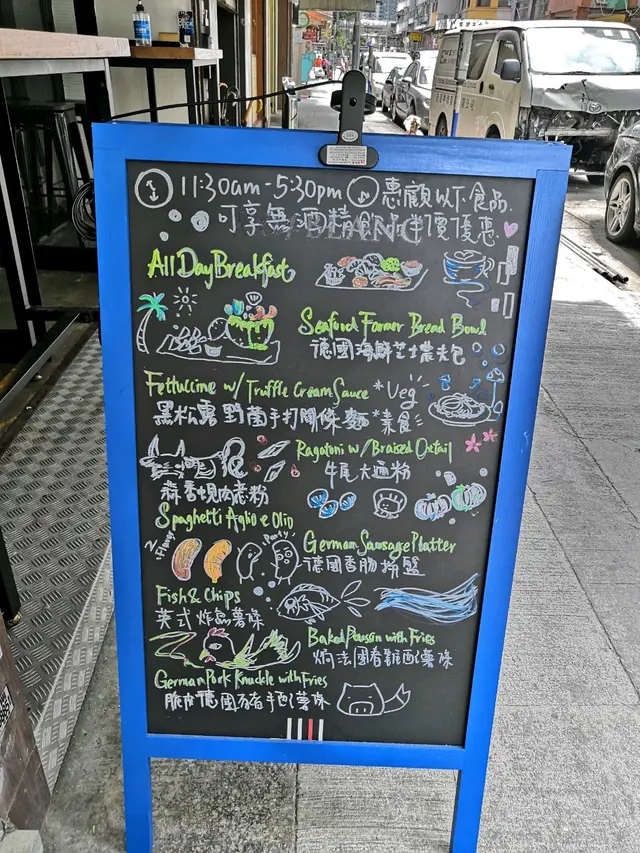 11:30am - 5:30pm 惠顧以下食品
可享無酒精飲品半價優惠
All Day Breakfast
Seafood Farmer Bread Bowl
德國海鮮芝士農夫包
Fettuccine w/ Truffle Cream Sauce *Veg
黑松露野菌手打闊條麵 *素食
Ragatoni w/ Braised Oxtail
牛尾大通粉
蒜香
Spaghetti Aglio e Olio
2 Flavor
Party
German Sausage Platter
德國香腸拼盤
Fish & Chips
英式炸魚薯條
Baked Poussin with Fries
焗法國春雞配薯條
German Pork Knuckle with Fries
脆皮德國豬手配薯條